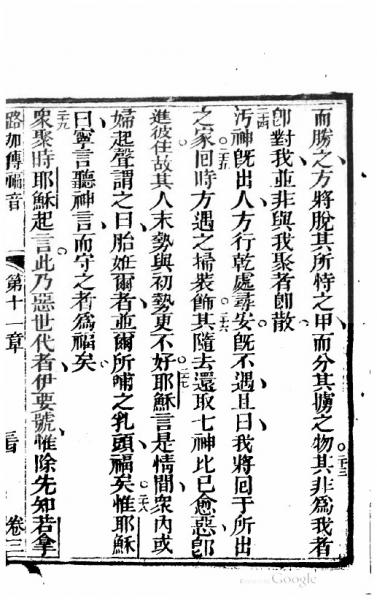 而勝之方將脫其所恃之甲而分其擄之物其非爲我者
卽對我並非與我聚者卽散
汚神旣出人方行乾處尋安旣不遇且曰我將回于所出
之家回時方遇之掃裝飾其隨去還取七神比已愈惡卽
進彼住故其人末勢與初勢更不好耶穌言是情間衆內或
婦起聲謂之曰胎姙爾者並爾所哺之乳頭福矣惟耶穌
曰寧言聽神言而守之者爲福矣
衆聚時耶穌起言此乃惡世代者伊要號惟除先知若拿
路加傳福音
第十一章
卷三
Google